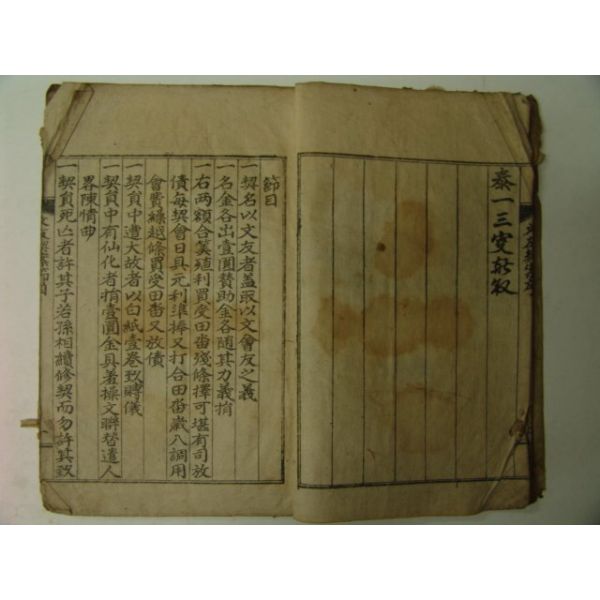 泰一三
節目
一契名以文友者盖取以文會友之義
一名金各出壹圓贊助金各隨其力義捐
一右两額合筭殖利買受田畓殘條擇可堪有司放
債每契會日具元利準捧又打合田畓歲入調用
會費緣越條買受田畓又放債
一契員中遭大故者以白紙壹卷致賻儀
一契員中有仙化者捐壹圓金具着操文聯替遣人
畧陳情曲
一契員死亾者許其子若孫相續修契而勿許其致